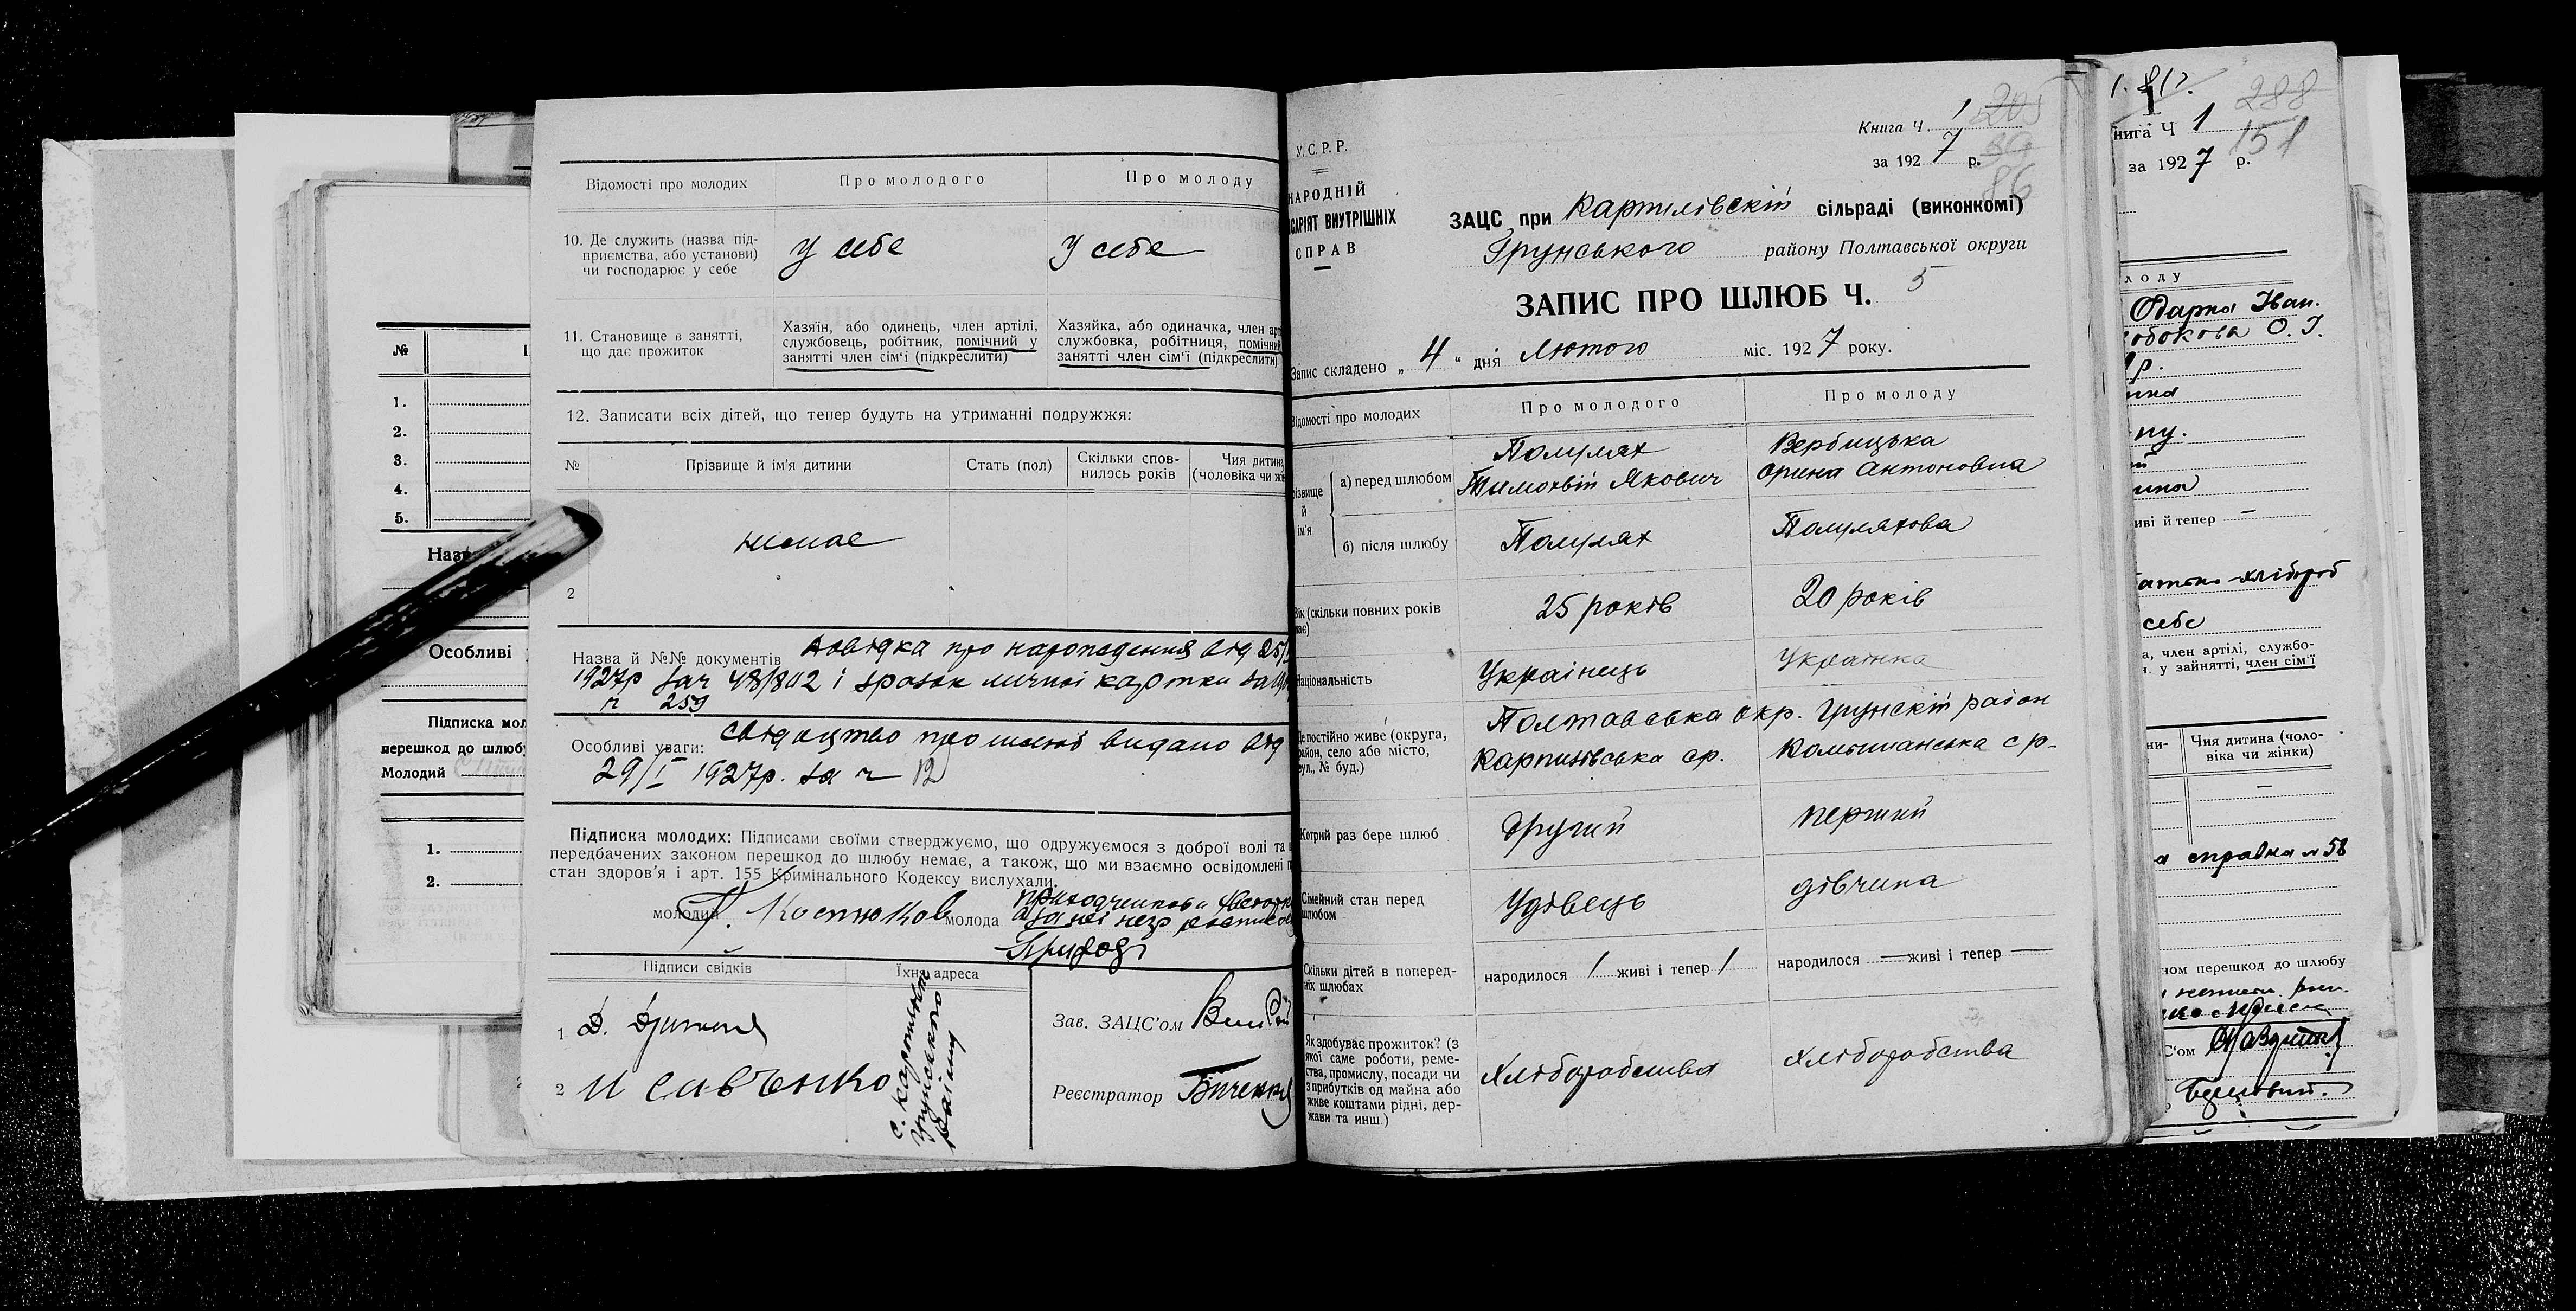 №
1.
2.
3.
4.
5.
Назв
Особливі
Підписка мол
перешкод до шлюбу
Молодий
1.
2.
Відомості про молодих
Про молодого
Про молоду
10. Де служить (назва під-
приємства, або установи)
чи господарює у себе
у себе
у себе
11. Становище в занятті,
що дає прожиток
Хазяїн, або одинець, член артілі,
службовець, робітник, помічний у
занятті член сім'ї (підкреслити)
Хазяйка, або одиначка, член арт
службовка, робітниця, помічний
занятті член сім'ї (підкреслити)
12. Записати всіх дітей, що тепер будуть на утриманні подружжя:
№
Прізвище й ім'я дитини
Стать (пол)
Скільки спов-
нилось років
Чия дитина
(чоловіка чи жі
немає
2
Назва й №№ документів довідка про народження від 25/
1927р за ч 48/802 і зразок личної картки за
ч 259
Особливі уваги: свідоцтво про шлюб видано від
29/I 1927р. за ч 12
Підписка молодих: Підписами своїми стверджуємо, що одружуємося з доброї волі та
передбачених законом перешкод до шлюбу немає, а також, що ми взаємно освідомлені п
стан здоров'я і арт. 155 Кримінального Кодексу вислухали.
молодий Костюков молода
а за неї негр
Підписи свідків
Їхня адреса
1 Д.
2 И Савченко
с.
Грунського
району
Зав. ЗАЦС'ом
Реєстратор
У.С.Р.Р.
НАРОДНІЙ
САРІЯТ ВНУТРІШНІХ
СПРАВ
Книга Ч. 1
за 1927 р.
205
86
ЗАЦС при Карпилівскій сільраді (виконкомі)
Грунського району Полтавської округи
ЗАПИС ПРО ШЛЮБ Ч. 5
Запис складено „4“ дня Лютого міс. 1927 року.
Відомості про молодих
Про молодого
Про молоду
різвище
й
ім'я
а) перед шлюбом
Тимохвій Якович
Вербицька
Орина Антоновна
б) після шлюбу
Вік (скільки повних років
має)
25 років
20 років
Національність
Українець
Українка
Де постійно живе (округа,
район, село або місто,
вул., № буд.)
Полтавська окр. Грунскій район
Карпилівська ср.
ср.
Котрий раз бере шлюб
другий
первий
Сімейний стан перед
шлюбом
Удівець
дівчина
Скільки дітей в поперед-
ніх шлюбах
народилося 1 живі і тепер 1
народилося — живі і тепер —
Як здобуває прожиток? (з
якої саме роботи, реме-
ства, промислу, посади чи
з прибутків од майна або
живе коштами рідні, дер-
жави та инш.)
Хліборобства
Хліборобства
288
151
нига Ч 1
за 1927 р.
лоду
Одарка Іван.
О. І.
р.
иві й тепер —
хлібороб
себе
а, член артілі, службо-
у зайнятті, член сім'ї
ни-
Чия дитина (чоло-
віка чи жінки)
—
а справка № 58
ном перешкод до шлюбу
С'ом